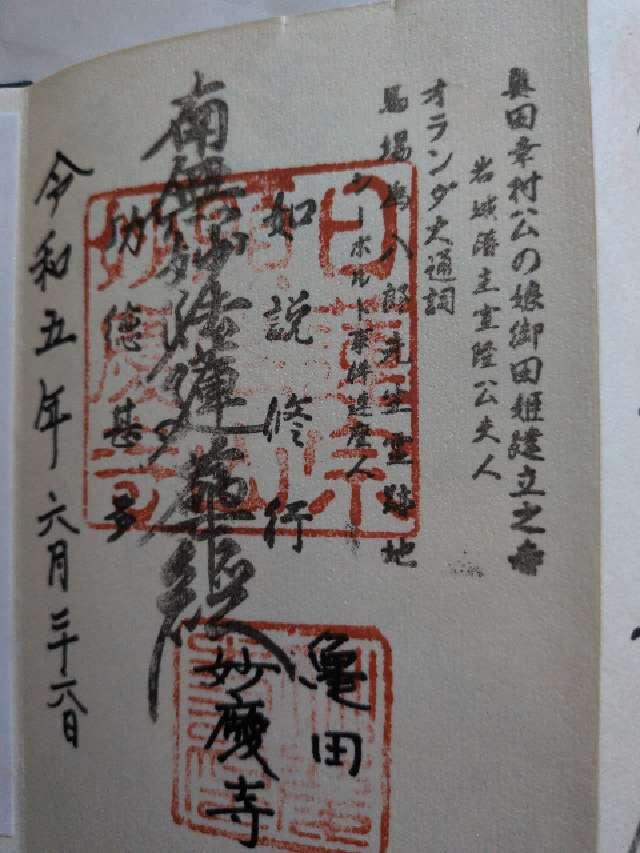 真田幸村公の娘御田姫建立之寺
岩城藩主宣隆公夫人
オランダ大通詞
馬場為八郎先生霊跡地
シーボルト事件連座人
日蓮宗
妙慶寺
如説修行
南無妙法蓮華経
功徳甚多
令和五年六月二十六日
亀田
妙慶寺